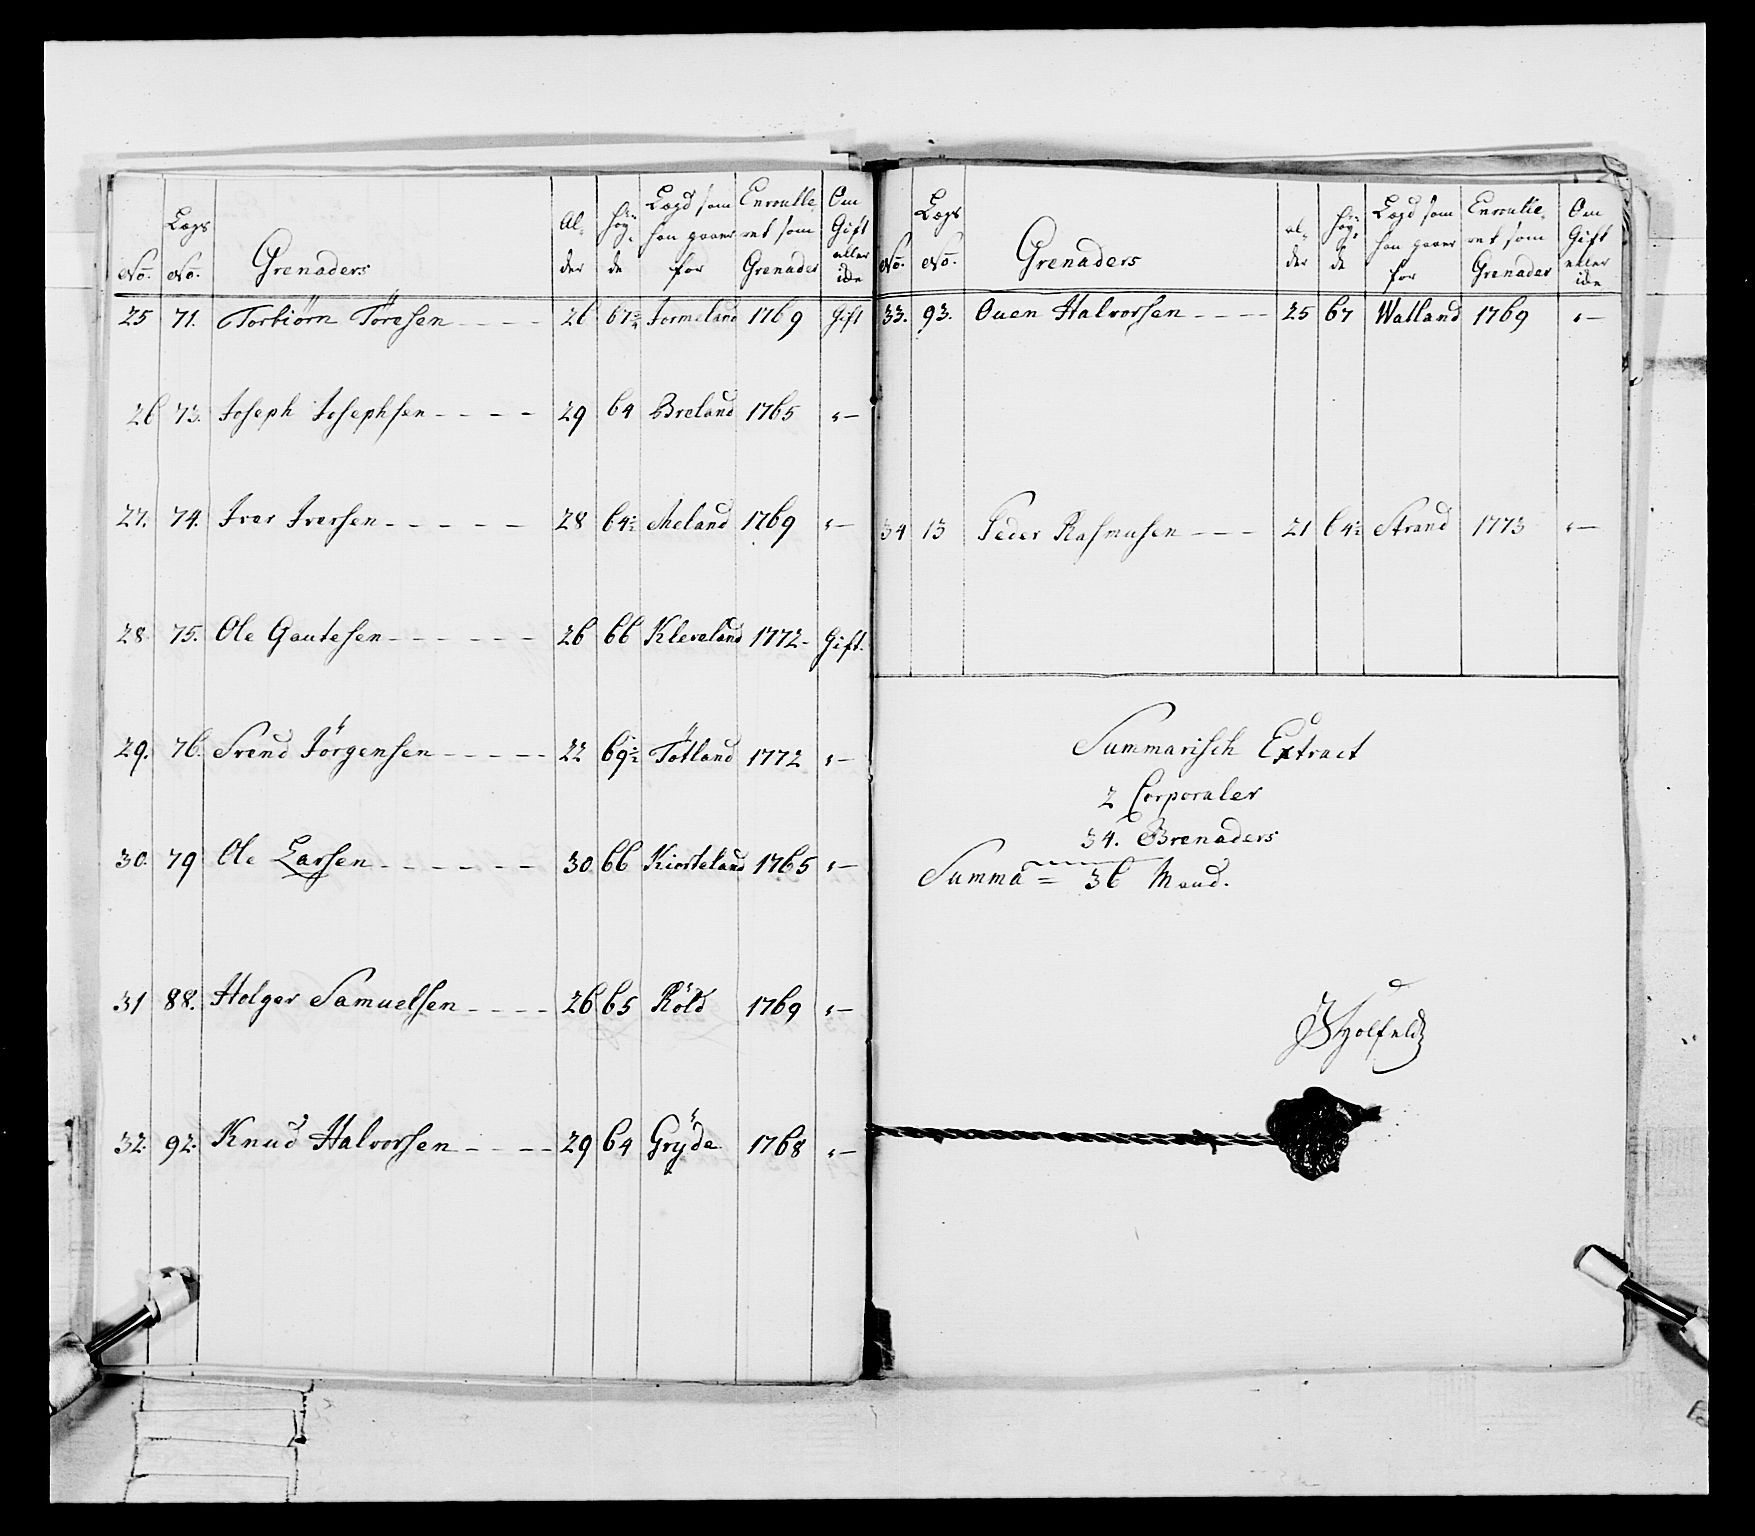 No. Lægs No. Grenaders Al- der Høy- de Lægd som han gaaer for Enroulle- ret som Grenader Om Gift eller ide
25 71. Torbiörn Töresen 26 67¾ Jormeland 1769 Gift
26 73. Joseph Josephsen 29 64 Breland 1765 "
27. 74. Iver Iversen 28 64½ Aeland 1769 "
28 75. Ole Gautesen 26 66 Kleveland 1772 Gift
29. 76. Svend Jörgensen 22 69½ Tötland 1772 "
30. 79 Ole Larsen 30 66 Kiorteland 1765 "
31 88. Holger Samuelsen 26 65 Röld 1769 "
32. 92. Knud Halvorsen 29 64 Gryde 1768 "
No. Lægs No. Grenaders al- der Høy- de Lægd som han gaaer for Enroulle- ret som Grenader Om Gift eller ide
33. 93. Ouen Halvorsen 25 67 Watland 1769 "
34 13 Peder Rasmusen 21 64½ Strand 1773 "
Summarisch Extract
2 Corporaler
34. Grenaders
Summa = 36 Mand.